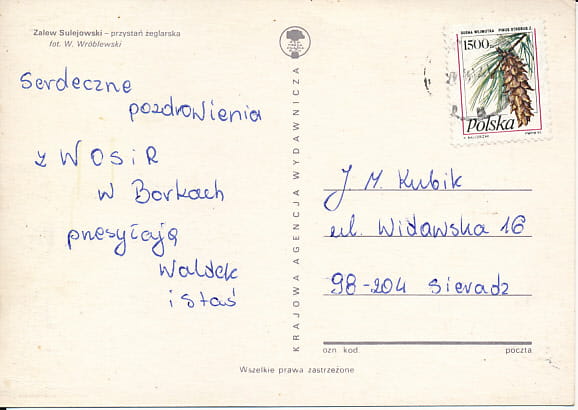 Zalew Sulejowski – przystań żeglarska
fot. W. Wróblewski
Serdeczne
pozdrowienia
z WOSiR
w Borkach
przesyłają
Waldek
i Staś
KRAJOWA AGENCJA WYDAWNICZA
SOSNA WEJMUTKA PINUS STROBUS L.
1500 zł
Polska
J. M. Kubik
ul. Widawska 16
98-204 Sieradz
ozn kod
poczta
Wszelkie prawa zastrzeżone